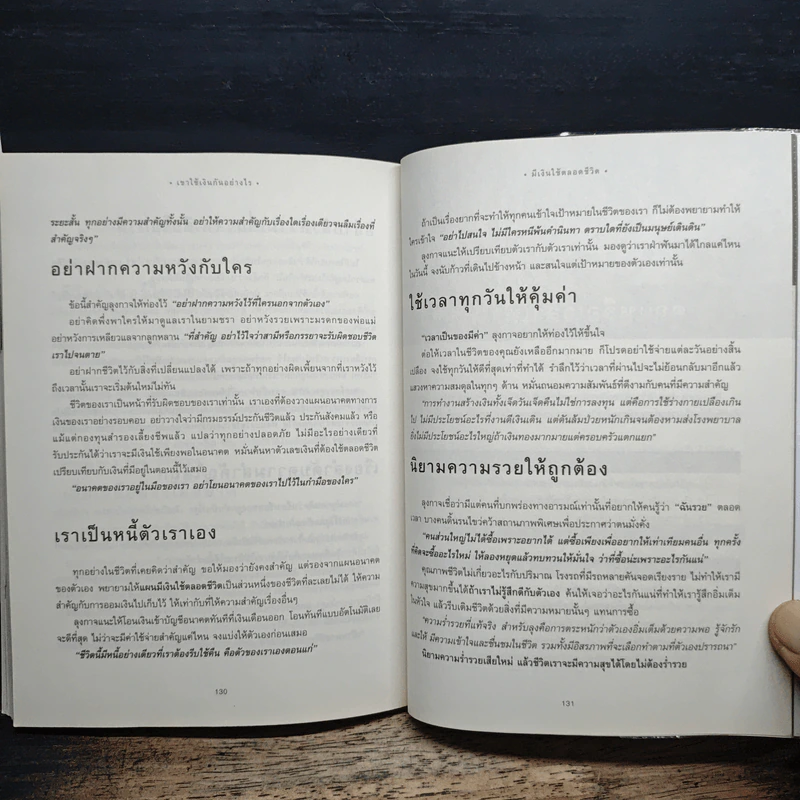 • เขาใช้เงินกันอย่างไร •
ระยะสั้น ทุกอย่างมีความสำคัญทั้งนั้น อย่าให้ความสำคัญกับเรื่องใดเรื่องเดียวจนลืมเรื่องที่
สำคัญจริงๆ"
อย่าฝากความหวังกับใคร
ข้อนี้สำคัญลุงกาจให้ท่องไว้ "อย่าฝากความหวังไว้ที่ใครนอกจากตัวเอง"
อย่าคิดพึ่งพาใครให้มาดูแลเราในยามชรา อย่าหวังรวยเพราะมรดกของพ่อแม่
อย่าหวังการเหลียวแลจากลูกหลาน "ที่สำคัญ อย่าไว้ใจว่าสามีหรือภรรยาจะรับผิดชอบชีวิต
เราไปจนตาย"
อย่าฝากชีวิตไว้กับสิ่งที่เปลี่ยนแปลงได้ เพราะถ้าทุกอย่างผิดเพี้ยนจากที่เราหวังไว้
ถึงเวลานั้นเราจะเริ่มต้นใหม่ไม่ทัน
ชีวิตของเราเป็นหน้าที่รับผิดชอบของเราเท่านั้น เราเองที่ต้องวางแผนอนาคตทางการ
เงินของเราอย่างรอบคอบ อย่าวางใจว่ามีกรมธรรม์ประกันชีวิตแล้ว ประกันสังคมแล้ว หรือ
แม้แต่กองทุนสำรองเลี้ยงชีพแล้ว แปลว่าทุกอย่างปลอดภัย ไม่มีอะไรอย่างเดียวที่
รับประกันได้ว่าเราจะมีเงินใช้เพียงพอในอนาคต หมั่นค้นหาตัวเลขเงินที่ต้องใช้ตลอดชีวิต
เปรียบเทียบกับเงินที่มีอยู่ในตอนนี้ไว้เสมอ
"อนาคตของเราอยู่ในมือของเรา อย่าโยนอนาคตของเราไปไว้ในกำมือของใคร"
เราเป็นหนี้ตัวเราเอง
ทุกอย่างในชีวิตที่เคยคิดว่าสำคัญ ขอให้มองว่ายังคงสำคัญ แต่รองจากแผนอนาคต
ของตัวเอง พยายามให้แผนมีเงินใช้ตลอดชีวิตเป็นส่วนหนึ่งของชีวิตที่ละเลยไม่ได้ ให้ความ
สำคัญกับการออมเงินไปเก็บไว้ ให้เท่ากับที่ให้ความสำคัญเรื่องอื่นๆ
ลุงกาจแนะให้โอนเงินเข้าบัญชีอนาคตทันทีที่เงินเดือนออก โอนทันทีแบบอัตโนมัติเลย
จะดีที่สุด ไม่ว่าจะมีค่าใช้จ่ายสำคัญแค่ไหน จงแบ่งให้ตัวเองก่อนเสมอ
"ชีวิตนี้มีหนี้อย่างเดียวที่เราต้องรีบใช้คืน คือตัวของเราเองตอนแก่"
130
• มีเงินใช้ตลอดชีวิต •
ถ้าเป็นเรื่องยากที่จะทำให้ทุกคนเข้าใจเป้าหมายในชีวิตของเรา ก็ไม่ต้องพยายามทำให้
ใครเข้าใจ "อย่าไปสนใจ ไม่มีใครหนีพ้นคำนินทา ตราบใดที่ยังเป็นมนุษย์เดินดิน"
ลุงกาจแนะให้เปรียบเทียบตัวเรากับตัวเราเท่านั้น มองดูว่าเราฝ่าฟันมาได้ไกลแค่ไหน
ในวันนี้ จงนับก้าวที่เดินไปข้างหน้า และสนใจแต่เป้าหมายของตัวเองเท่านั้น
ใช้เวลาทุกวันให้คุ้มค่า
"เวลาเป็นของมีค่า" ลุงกาจอยากให้ท่องไว้ให้ขึ้นใจ
ต่อให้เวลาในชีวิตของคุณยังเหลืออีกมากมาย ก็โปรดอย่าใช้จ่ายแต่ละวันอย่างสิ้น
เปลือง จงใช้ทุกวันให้ดีที่สุดเท่าที่ทำได้ รำลึกไว้ว่าเวลาที่ผ่านไปจะไม่ย้อนกลับมาอีกแล้ว
แสวงหาความสมดุลในทุกๆ ด้าน หมั่นถนอมความสัมพันธ์ที่ดีงามกับคนที่มีความสำคัญ
"การทำงานสร้างเงินทั้งเจ็ดวันเจ็ดคืนไม่ใช่การลงทุน แต่คือการใช้ร่างกายเปลืองเกิน
ไป ไม่มีประโยชน์อะไรที่งานดีเงินเดิน แต่ดันล้มป่วยหนักเกินจนต้องหามส่งโรงพยาบาล
ยิ่งไม่มีประโยชน์อะไรใหญ่ถ้าเงินทองมากมายแต่ครอบครัวแตกแยก"
นิยามความรวยให้ถูกต้อง
ลุงกาจเชื่อว่ามีแต่คนที่บกพร่องทางอารมณ์เท่านั้นที่อยากให้คนรู้ว่า "ฉันรวย" ตลอด
เวลา บางคนดิ้นรนไขว่คว้าสถานภาพพิเศษเพื่อประกาศว่าตนมั่งคั่ง
"คนส่วนใหญ่ไม่ได้ซื้อเพราะอยากได้ แต่ซื้อเพียงเพื่ออยากให้เท่าเทียมคนอื่น ทุกครั้ง
ที่คิดจะซื้ออะไรใหม่ ให้ลองหยุดแล้วทบทวนให้มั่นใจ ว่าที่ซื้อน่ะเพราะอะไรกันแน่"
คุณภาพชีวิตไม่เกี่ยวอะไรกับปริมาณ โรงรถที่มีรถหลายคันจอดเรียงราย ไม่ทำให้เรามี
ความสุขมากขึ้นได้ถ้าเราไม่รู้สึกดีกับตัวเอง ค้นให้เจอว่าอะไรกันแน่ที่ทำให้เรารู้สึกอิ่มเต็ม
ในหัวใจ แล้วรีบเติมชีวิตด้วยสิ่งที่มีความหมายนั้นๆ แทนการซื้อ
"ความร่ำรวยที่แท้จริง สำหรับลุงคือการตระหนักว่าตัวเองอิ่มเต็มด้วยความพอ รู้จักรัก
และให้ มีความเข้าใจและชื่นชมในชีวิต รวมทั้งมีอิสรภาพที่จะเลือกทำตามที่ตัวเองปรารถนา"
นิยามความร่ำรวยเสียใหม่ แล้วชีวิตเราจะมีความสุขได้โดยไม่ต้องร่ำรวย
131